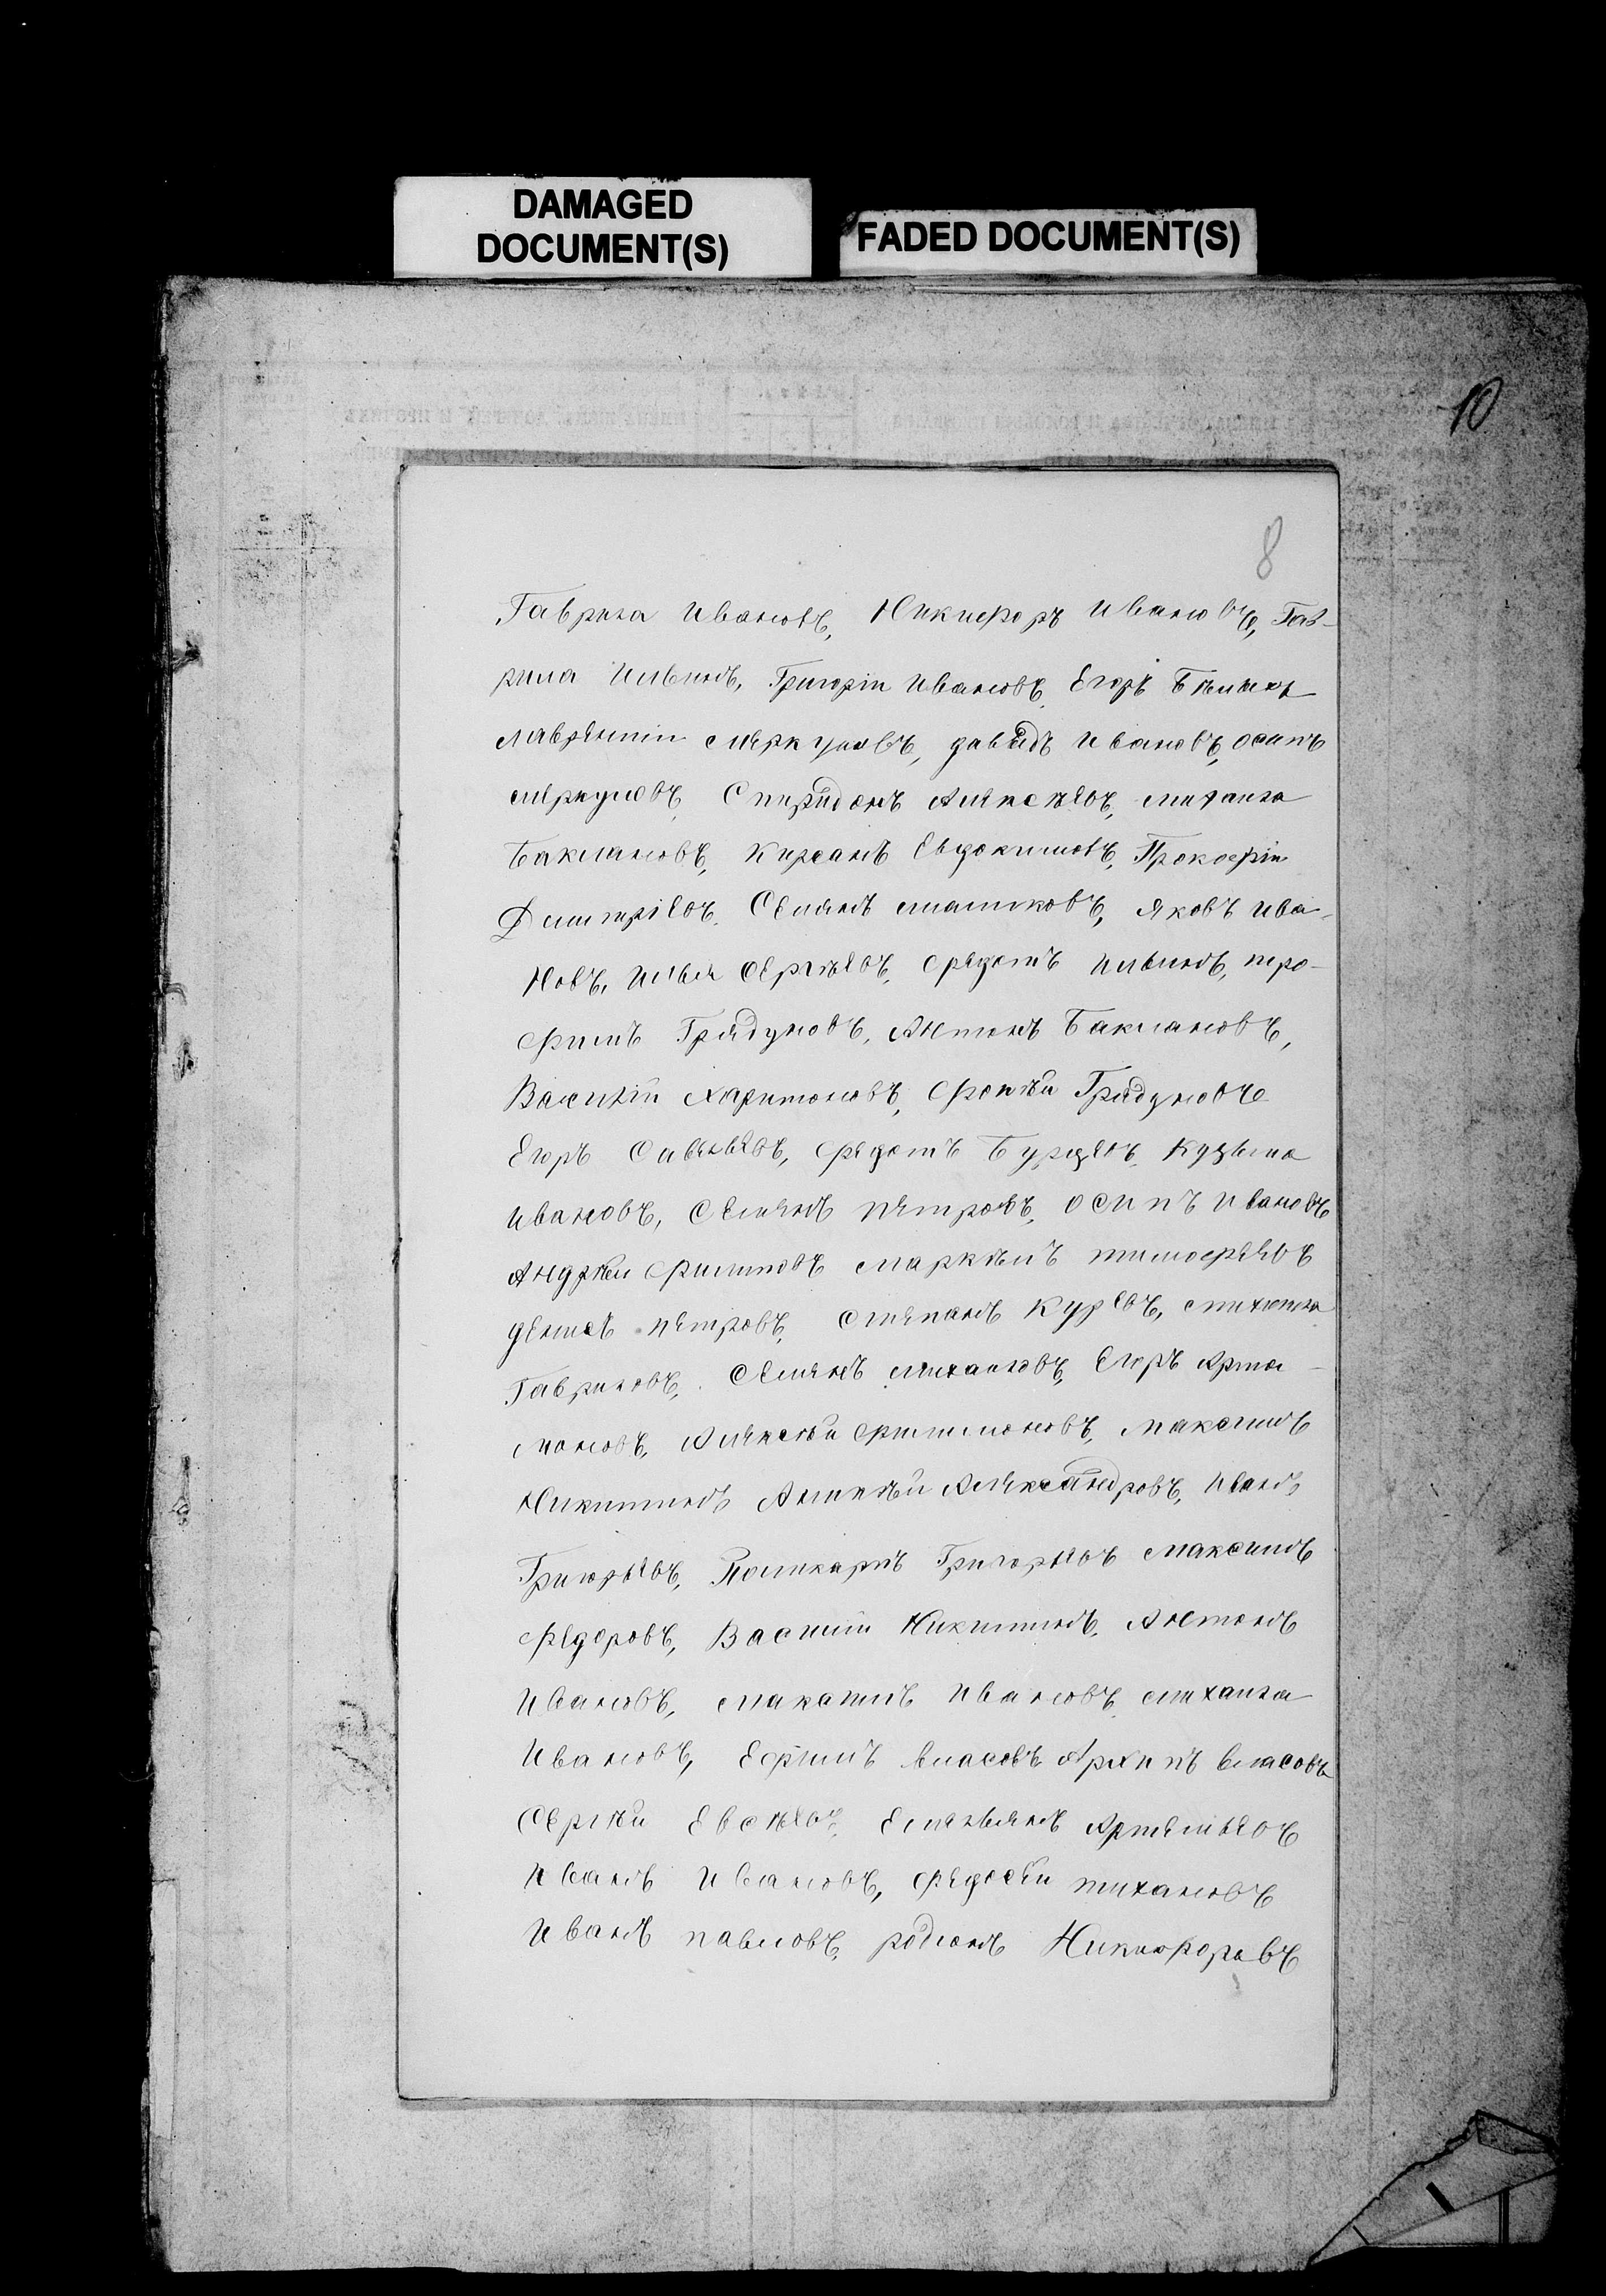 DAMAGED
DOCUMENT(S)
FADED DOCUMENT(S)
10
8
Гаврила Ивановъ, Никифоръ Ивановъ, Гав-
рила Ильинъ, Григорій Ивановъ, Егоръ
Лаврентій Меркуловъ, Давыдъ Ивановъ, Осипъ
Меркуловъ, Спиридонъ Алексѣевъ, Михаила
Баклановъ, Кирсанъ Евдокимовъ, Прокофій
Дмитріевъ, Семенъ Машковъ, Яковъ Ива-
новъ, Илья Сергѣевъ, Федотъ Ильинъ, Тро-
фимъ Грядуновъ, Антонъ Баклановъ,
Василій Харитоновъ, Фокѣй Грядуновъ
Егоръ Савельевъ, Федотъ Бурцевъ, Кузьма
Ивановъ, Семенъ Петровъ, Осипъ Ивановъ
Андрей Филиповъ Маркѣлъ Тимофеевъ
Денисъ Петровъ, Степанъ Куревъ,
Гавриловъ, Семенъ Михаиловъ, Егоръ Арта-
моновъ, Алексѣй Филимоновъ, Максимъ
Никитинъ Аникѣй Александровъ, Иванъ
Григорьевъ, Поликарпъ Григорьевъ Максимъ
Федоровъ, Василій Никитинъ, Антонъ
Ивановъ, Ивановъ, Михаила
Ивановъ, Ефимъ Власовъ Архипъ Власовъ
Сергѣй Евсѣевъ, Емельянъ Артемьевъ
Иванъ Ивановъ, Федосей Тихановъ
Иванъ Павловъ, Родіонъ Никифоровъ